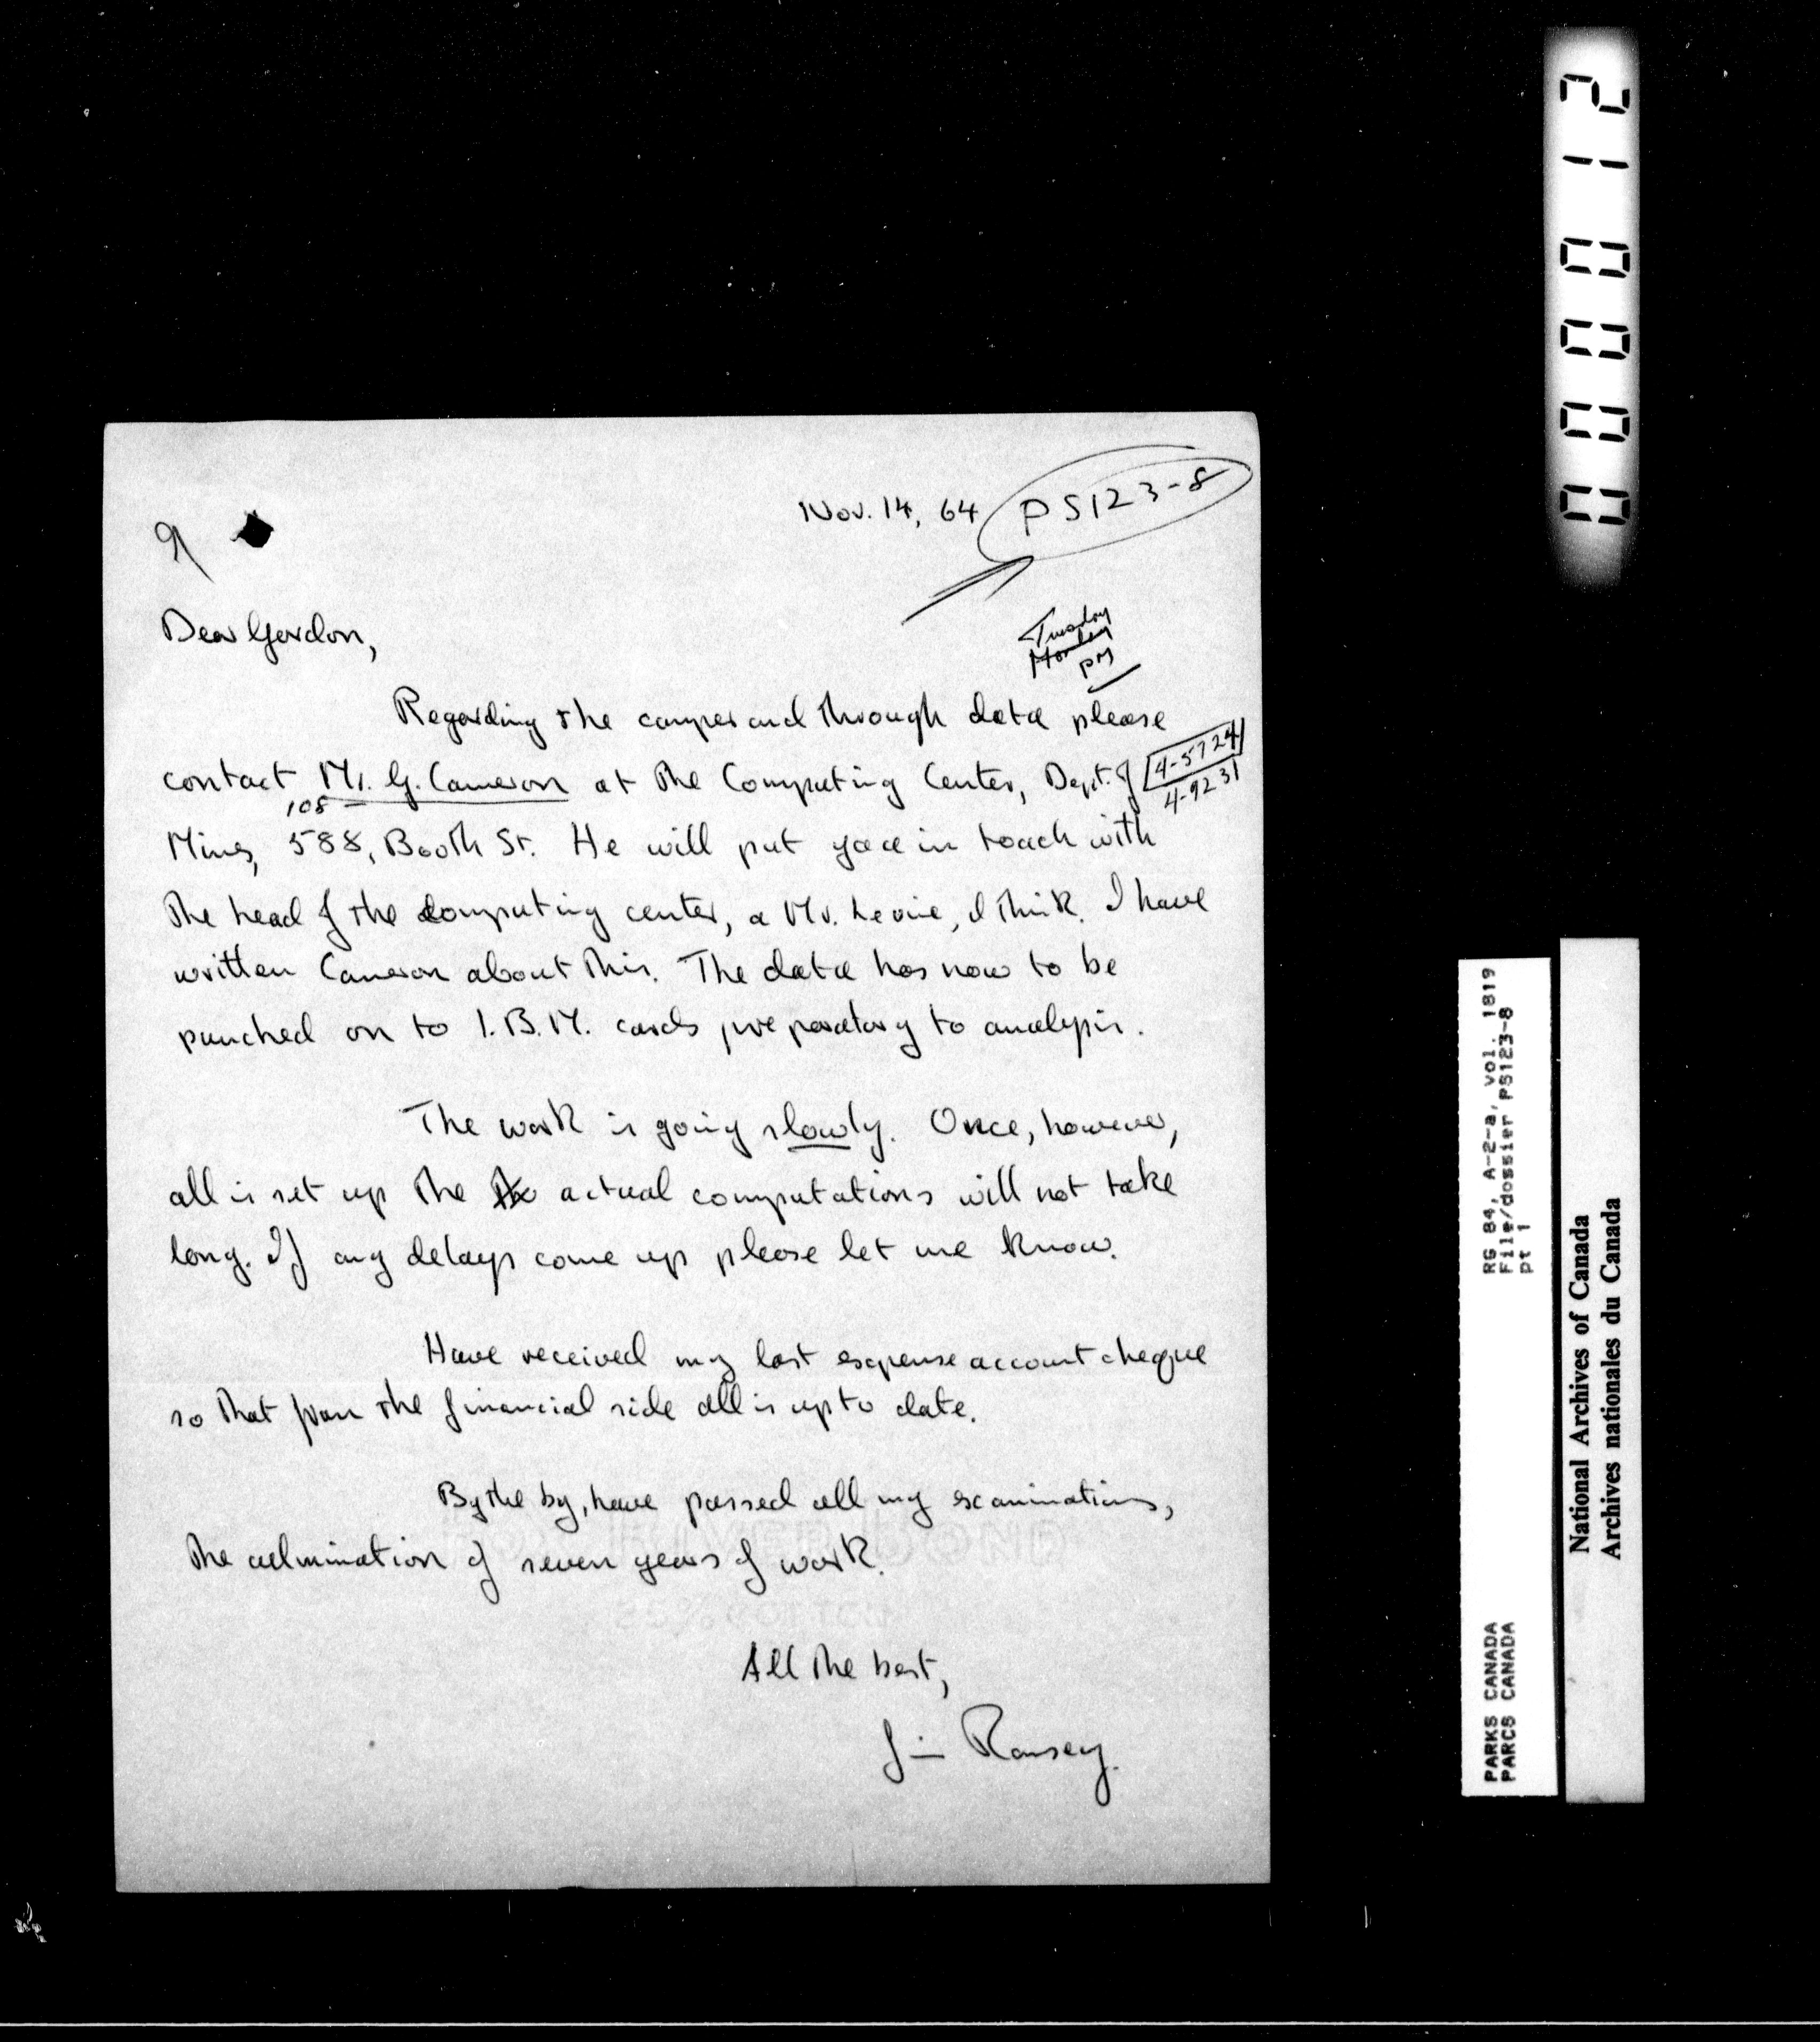 000012
Nov. 14, 64
PS123-8
9
Dear Gordon,
Tuesday
Monday
PM
Regarding the camper and through data please
contact Mr. G. Cameron at the Computing Center, Dept. of
4-5724
4-9231
108
Mines, 588, Booth St. He will put you in touch with
the head of the computing center, a Mr. Levine, I think. I have
written Cameron about this. The data has now to be
punched on to I.B.M. cards preparatory to analysis.
The work is going slowly. Once, however,
all is set up the actual computations will not take
long. If any delays come up please let me know.
Have received my last expense account cheque
so that from the financial side all is up to date.
By the by, have passed all my examinations,
the culmination of seven years of work.
All the best,
Jim Ramsey.
RIVER BOND
25% COTTON
RG 84, A-2-a, vol. 1819
File/dossier PS123-8
pt 1
PARKS CANADA
PARCS CANADA
National Archives of Canada
Archives nationales du Canada